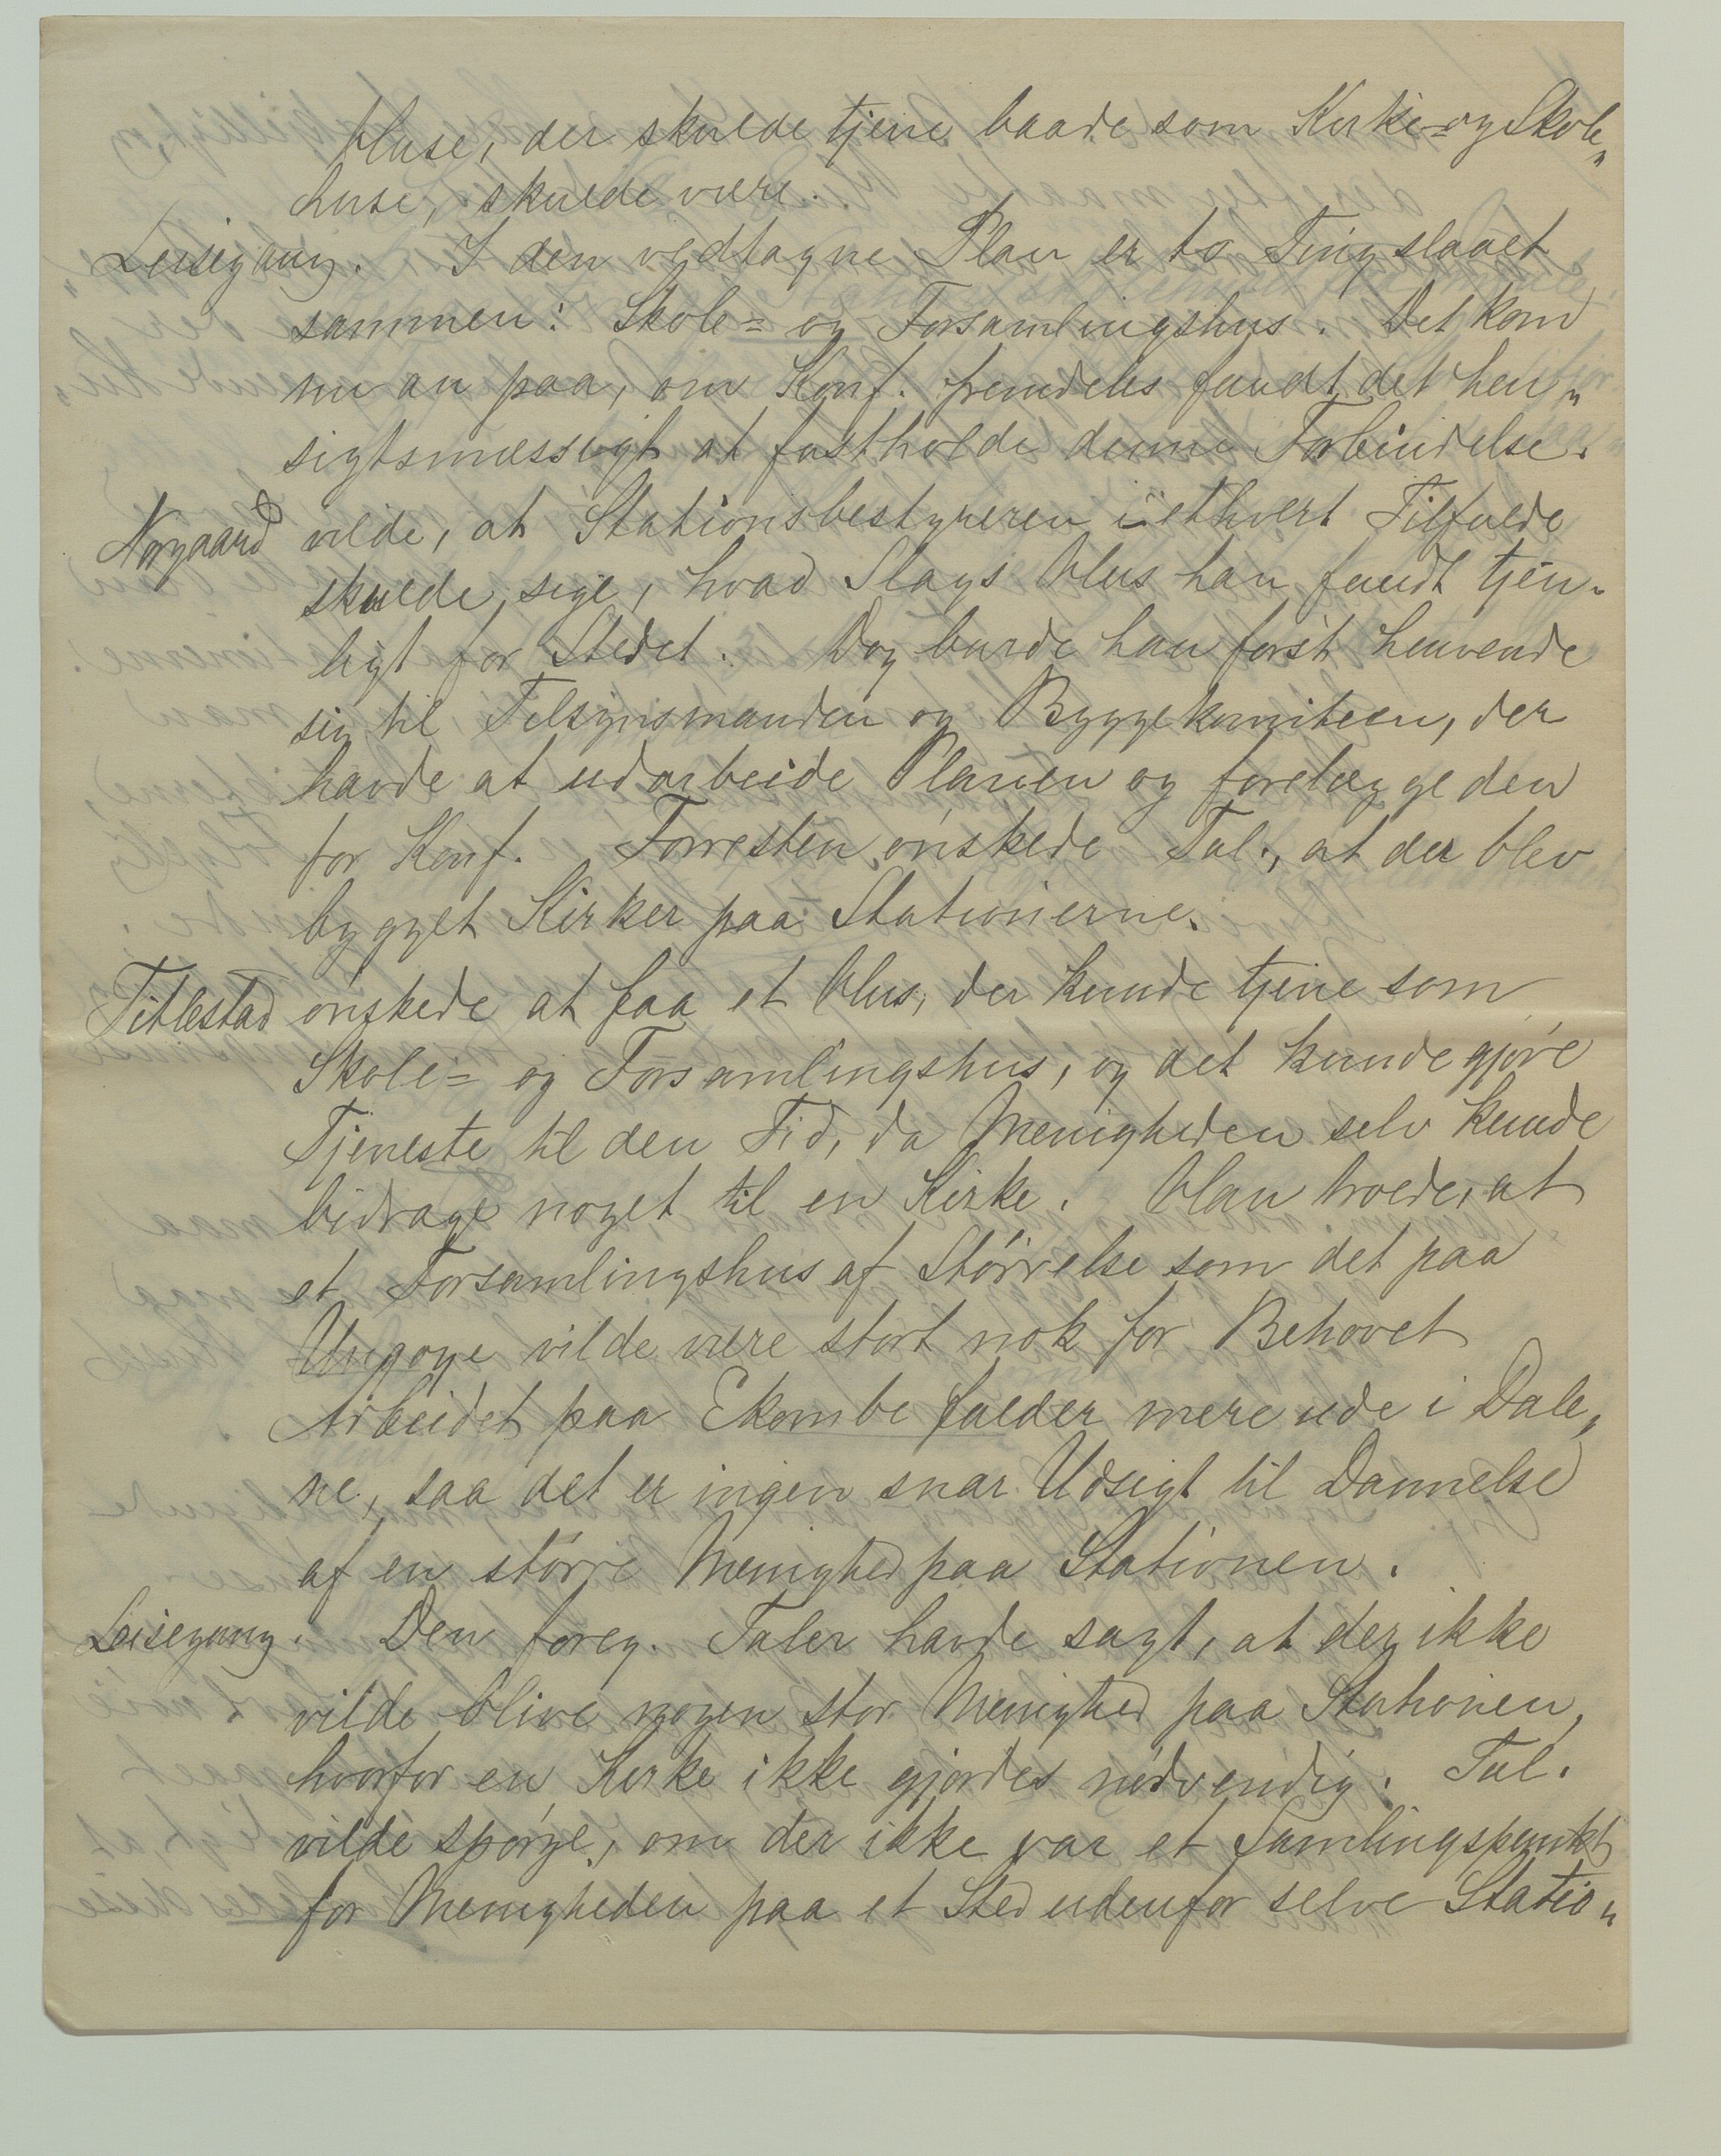 Huse, der skulde tjene baade som Kirke- og Skole„
huse, skulde være.
Leisegang. I den vedtagne Plan er to Ting slaaet
sammen: Skole= og Forsamlingshus. Det kom
nu an paa, om Konf. fremdeles fandt det hen„
sigtsmæssigt at fastholde denne Forbindelse.
Norgaard vilde, at Stationsbestyreren i ethvert Tilfælde
skulde sige, hvad Slags Hus han fandt tjen-
ligt for Stedet. Dog burde han først henvende
sig til Tilsynsmanden og Byggekomiteen, der
havde at udarbeide Planen og forelægge den
for Konf. Forresten ønskede Tal., at der blev
bygget Kirker paa Stationerne.
Titlestad ønskede at faa et Hus, der kunde tjene som
Skole= og Forsamlingshus, og det kunde gjøre
Tjeneste til den Tid, da Menigheden selv kunde
bidrage noget til en Kirke. Han troede, at
et Forsamlingshus af Størrelse som det paa
Ungoye vilde være stort nok for Behovet
Arbeidet paa Ekombe falder mere ude i Dale„
ne, saa det er ingen snar Udsigt til Dannelse
af en større Menighed paa Stationen.
Leisegang. Den foreg. Taler havde sagt, at der ikke
vilde blive nogen stor Menighed paa Stationen,
hvorfor en Kirke ikke gjordes nødvendig. Tal.
vilde spørge, om der ikke var et Samlingspunkt
for Menigheden paa et Sted udenfor selve Statio„